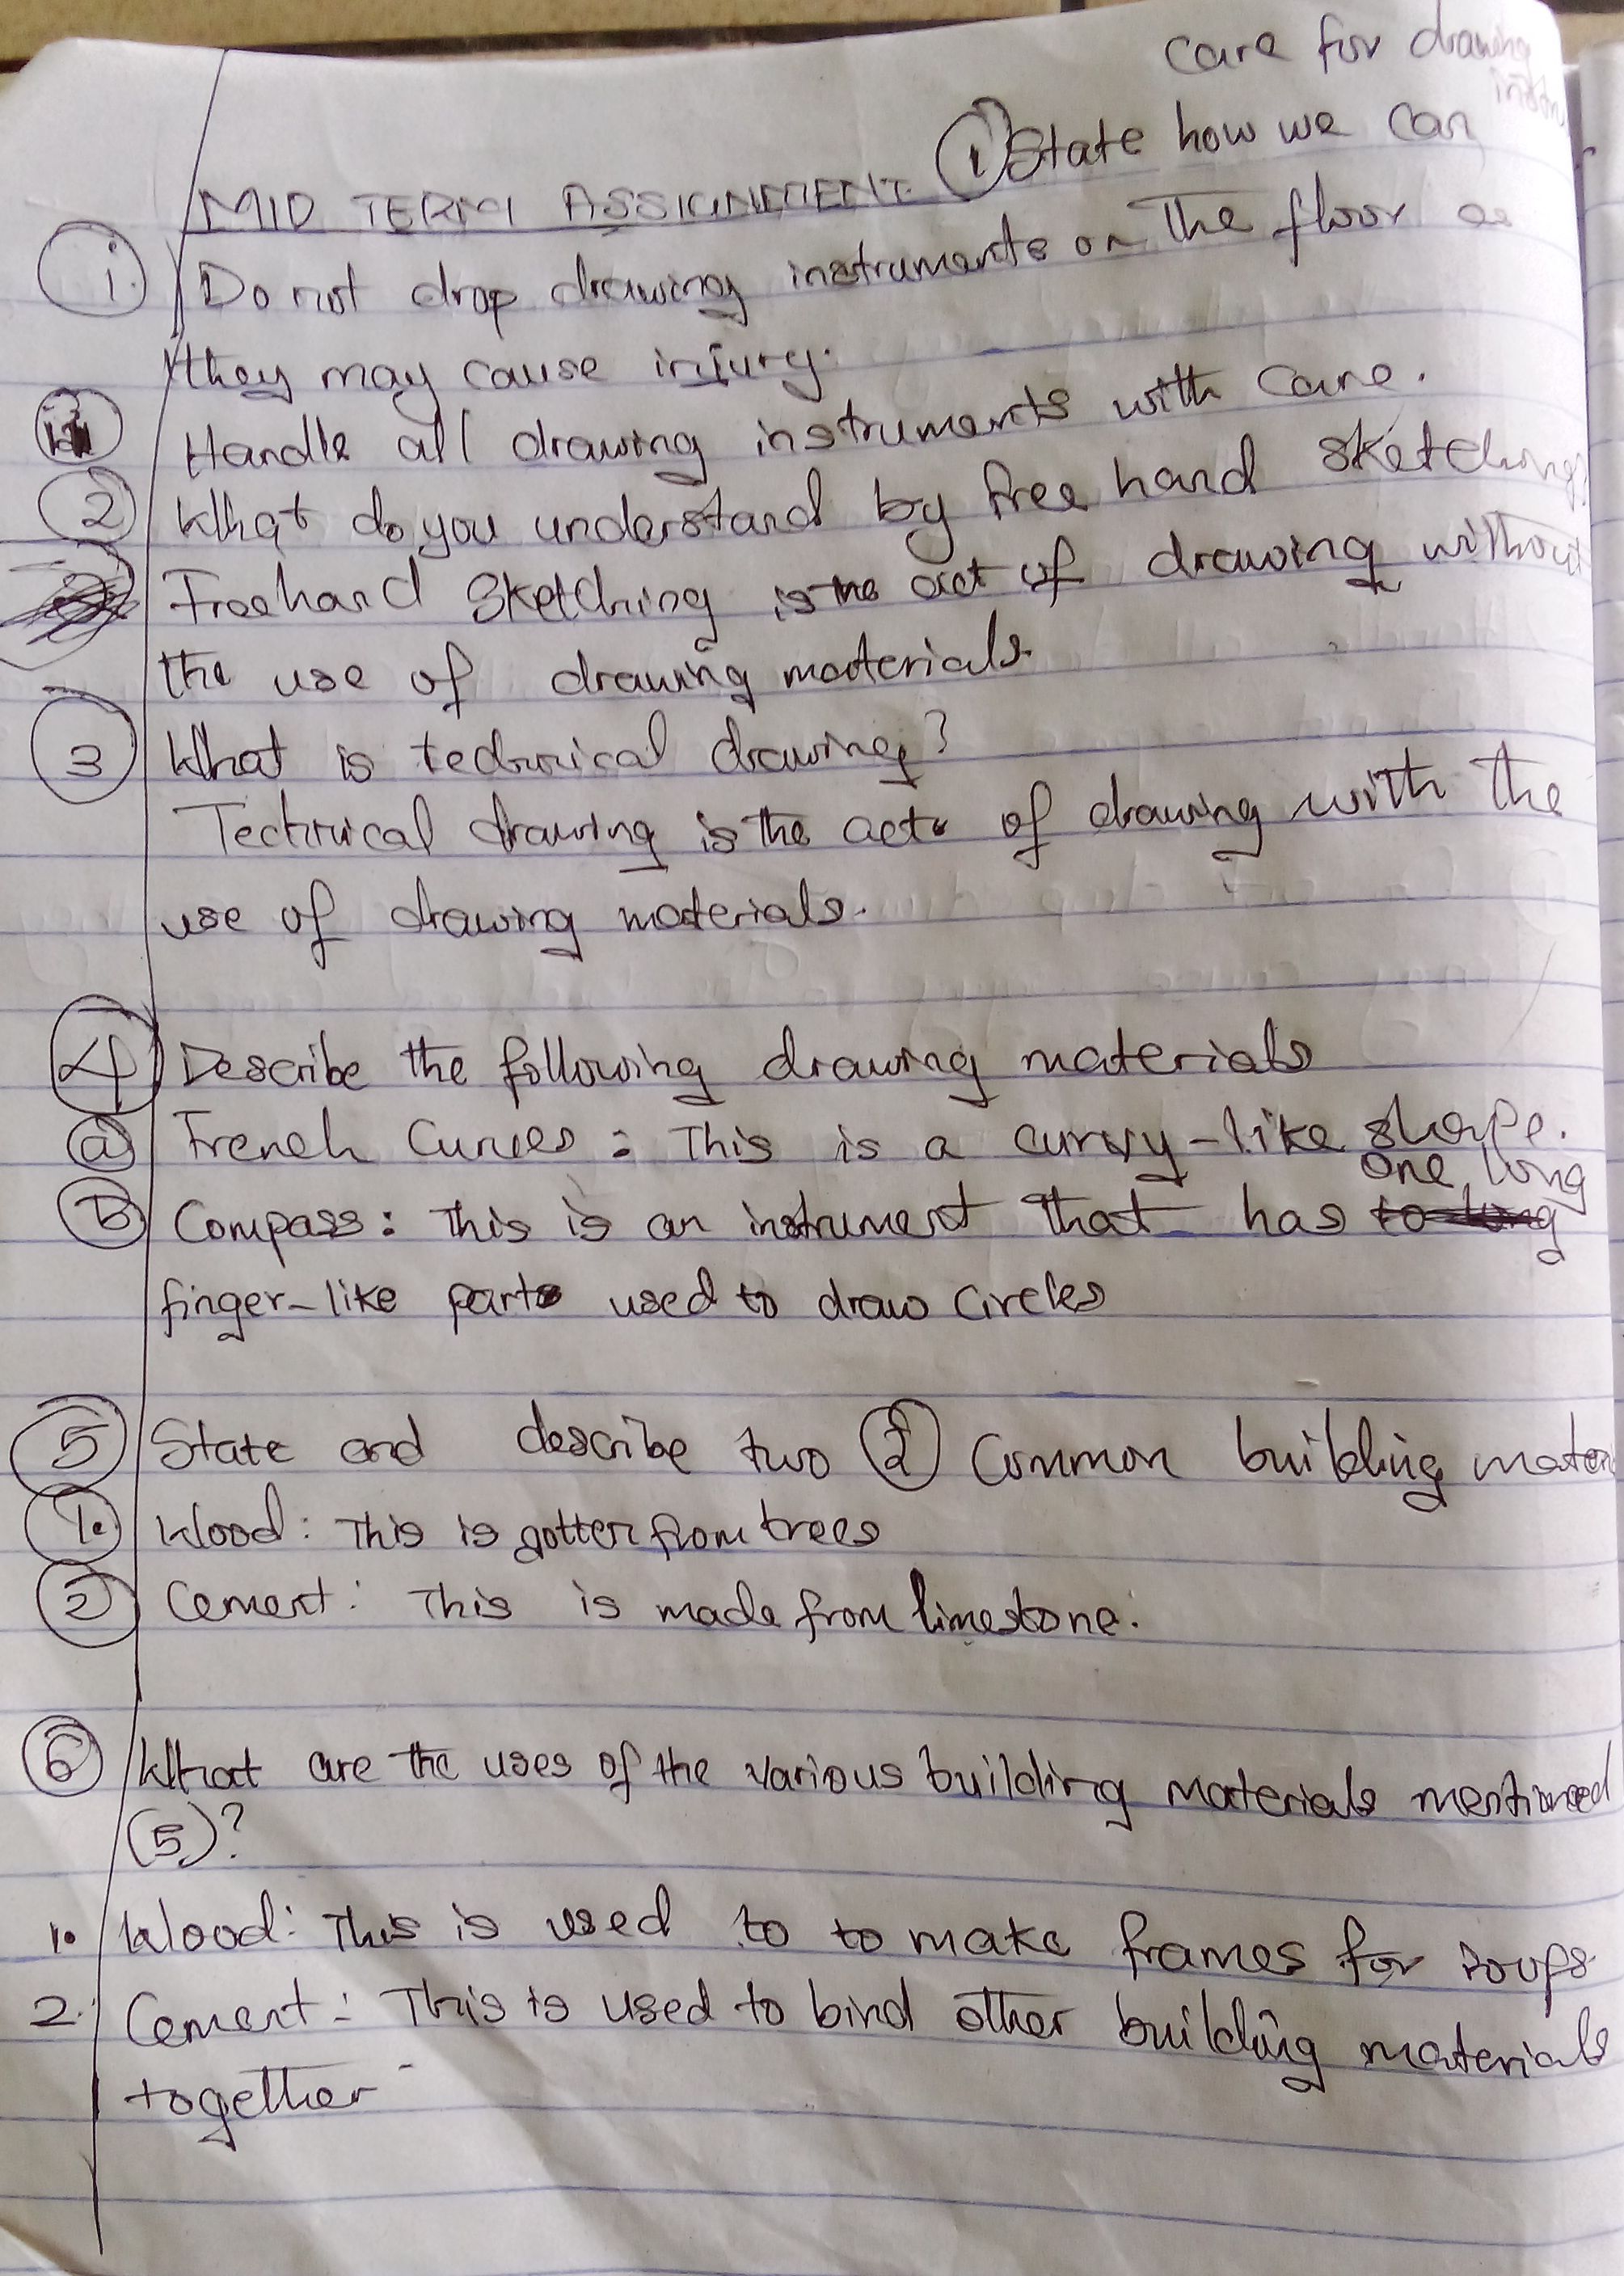 care for drawing
① State how we can
MID TERM ASSIGNMENT.
i. Do not drop drawing instruments on the floor as
they may cause injury.
ii Handle all drawing instruments with care.
② What do you understand by free hand sketching?
Freehand Sketching is the act of drawing without
the use of drawing materials.
③ What is technical drawing?
Technical drawing is the act of drawing with the
use of drawing materials.
④ Describe the following drawing materials
ⓐ French Curves: This is a curvy-like shape.
ⓑ Compass: This is an instrument that has one long
finger-like part used to draw circles
⑤ State and describe two ② Common building
1. Wood: This is gotten from trees
② Cement: This is made from limestone.
⑥ What are the uses of the various building materials mentioned
(5)?
1. Wood: This is used to to make frames for roofs.
2. Cement: This is used to bind other building materials
together